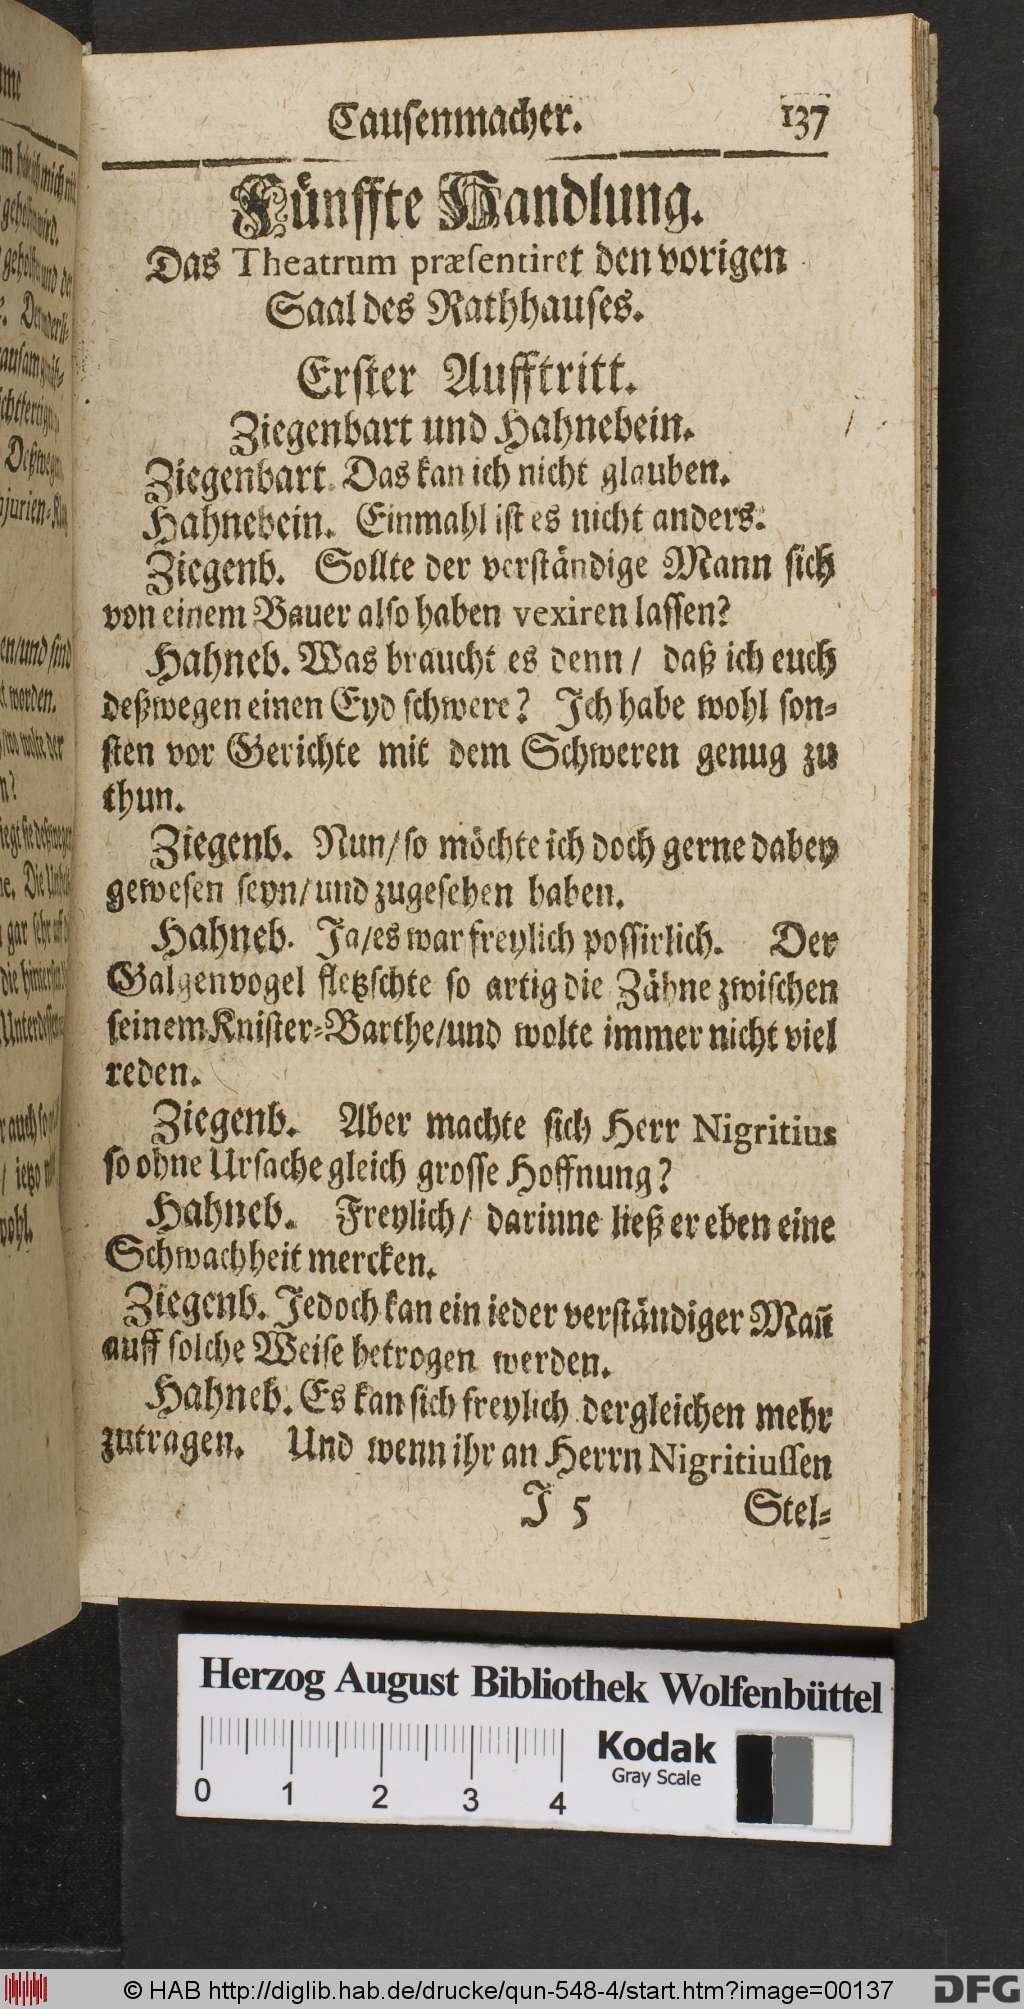 Causenmacher. 137
Fünffte Handlung.
Das Theatrum præsentiret den vorigen
Saal des Rathhauses.
Erster Aufftritt.
Ziegenbart und Hahnebein.
Ziegenbart. Das kan ich nicht glauben.
Hahnebein. Einmahl ist es nicht anders.
Ziegenb. Sollte der verständige Mann sich
von einem Bauer also haben vexiren lassen?
Hahneb. Was braucht es denn / daß ich euch
deßwegen einen Eyd schwere? Ich habe wohl son-
sten vor Gerichte mit dem Schweren genug zu
thun.
Ziegenb. Nun / so möchte ich doch gerne dabey
gewesen seyn / und zugesehen haben.
Hahneb. Ja / es war freylich possirlich. Der
Galgenvogel fletzschte so artig die Zähne zwischen
seinem Knister-Barthe / und wolte immer nicht viel
reden.
Ziegenb. Aber machte sich Herr Nigritius
so ohne Ursache gleich grosse Hoffnung?
Hahneb. Freylich / darinne ließ er eben eine
Schwachheit mercken.
Ziegenb. Jedoch kan ein ieder verständiger Mañ
auff solche Weise betrogen werden.
Hahneb. Es kan sich freylich dergleichen mehr
zutragen. Und wenn ihr an Herrn Nigritiussen
J 5 Stel-
Herzog August Bibliothek Wolfenbüttel
Kodak
Gray Scale
0 1 2 3 4
© HAB http://diglib.hab.de/drucke/qun-548-4/start.htm?image=00137
DFG